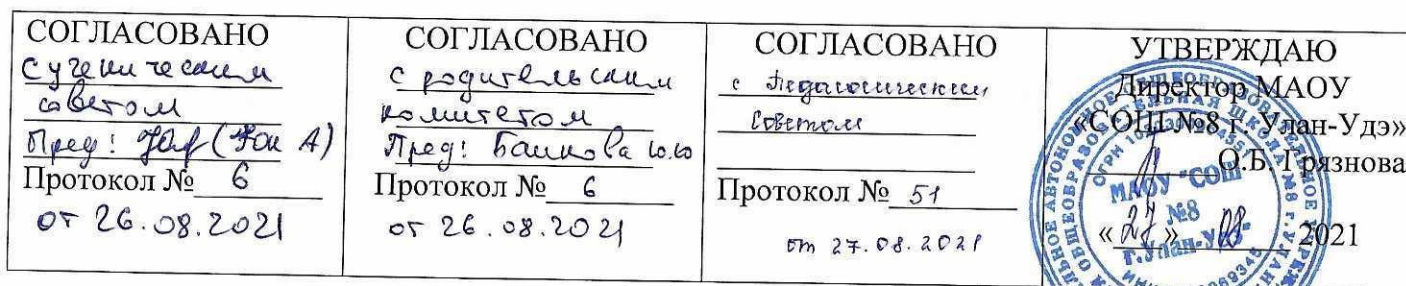 СОГЛАСОВАНО
с ученическим
советом
Пред:
Протокол № 6
от 26.08.2021
СОГЛАСОВАНО
с родительским
комитетом
Пред: Башкова Ю.Ю
Протокол № 6
от 26.08.2021
СОГЛАСОВАНО
с Педагогическим
Советом
Протокол № 51
от 27.08.2021
УТВЕРЖДАЮ
Директор МАОУ
«СОШ №8 г. Улан-Удэ»
О.Б. Грязнова
«27» 08 2021
МАОУ "СОШ
№8
г. Улан-Удэ"